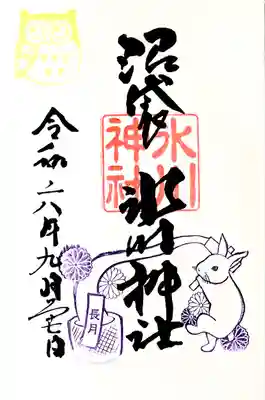 沼袋 氷川神社
氷川
神社
令和六年九月
長月